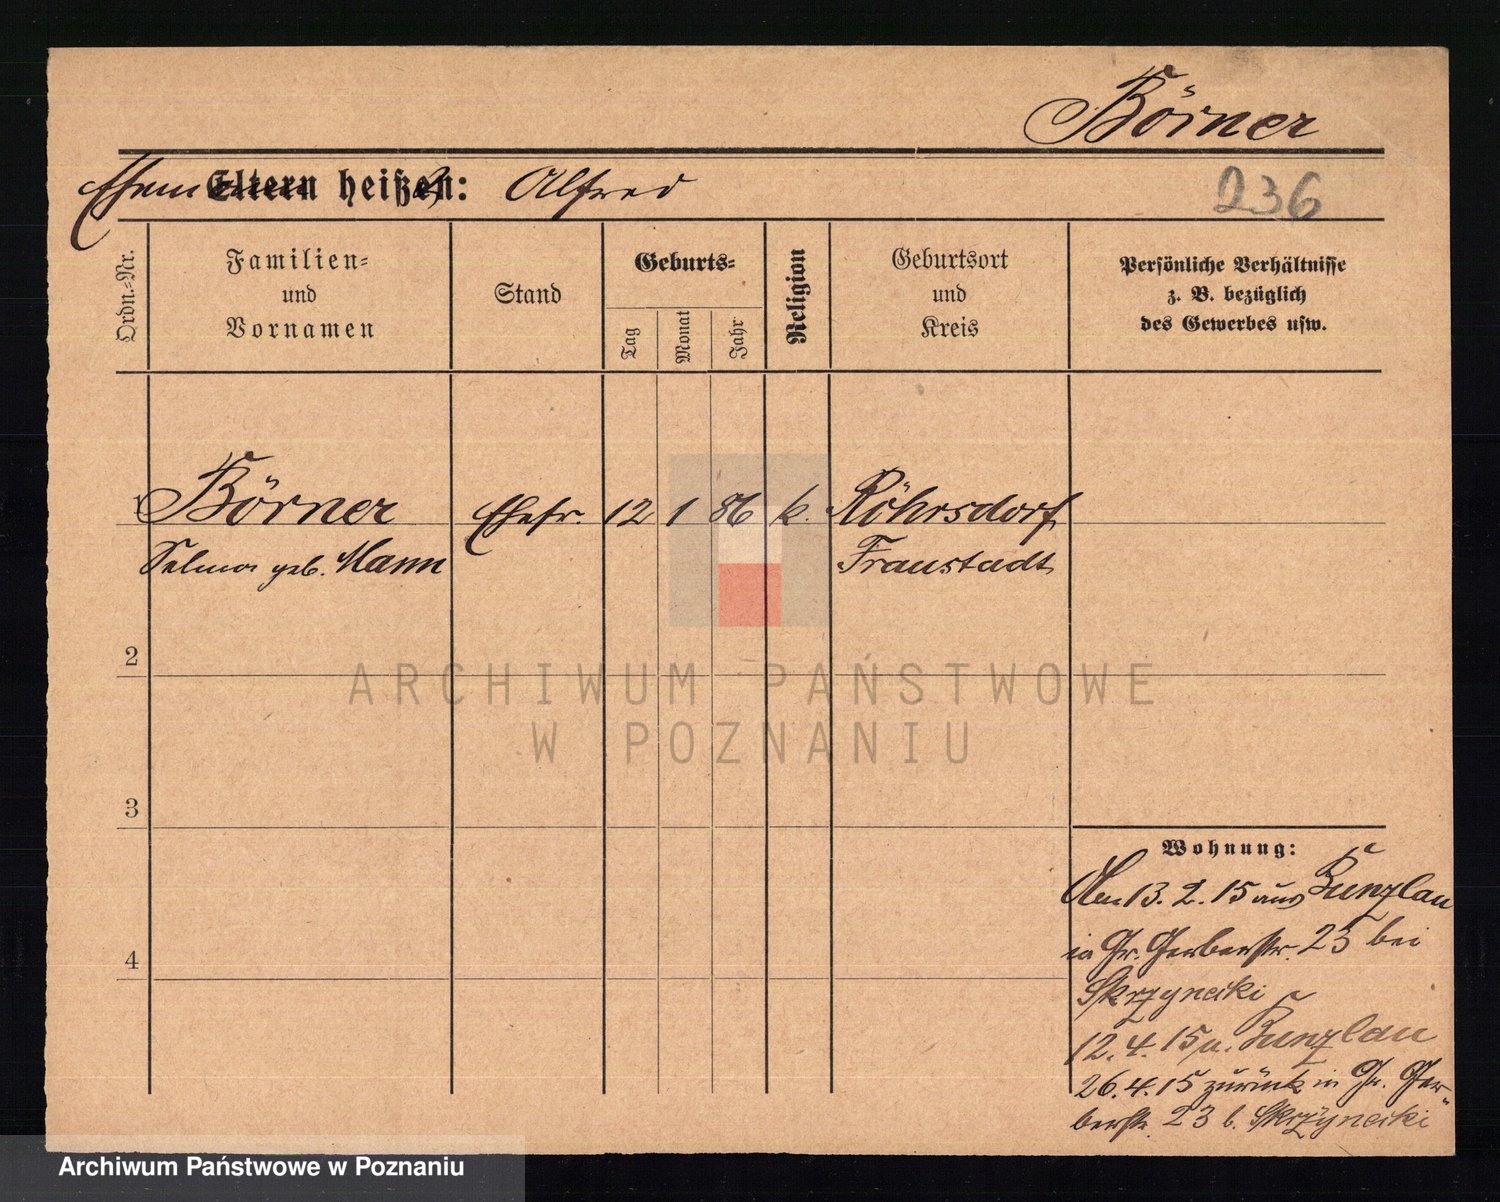 Börner
Ehemann heißt: Alfred
236
Ordn.-Nr.
Familien-
und
Vornamen
Stand
Geburts-
Tag
Monat
Jahr
Religion
Geburtsort
und
Kreis
Persönliche Verhältnisse
z. B. bezüglich
des Gewerbes usw.
1 Börner Ehefr. 12 1 86 k. Röhrsdorf
Selma geb. Mann Fraustadt
2
ARCHIWUM PAŃSTWOWE
W POZNANIU
3
Wohnung:
Den 13. 2. 15 aus Bunzlau
in Gr. Gerberstr. 23 bei
4
Skrzynecki
12. 4. 15 n. Bunzlau
26. 4. 15 zurück in Gr. Ger-
berstr. 23 b. Skrzynecki
Archiwum Państwowe w Poznaniu